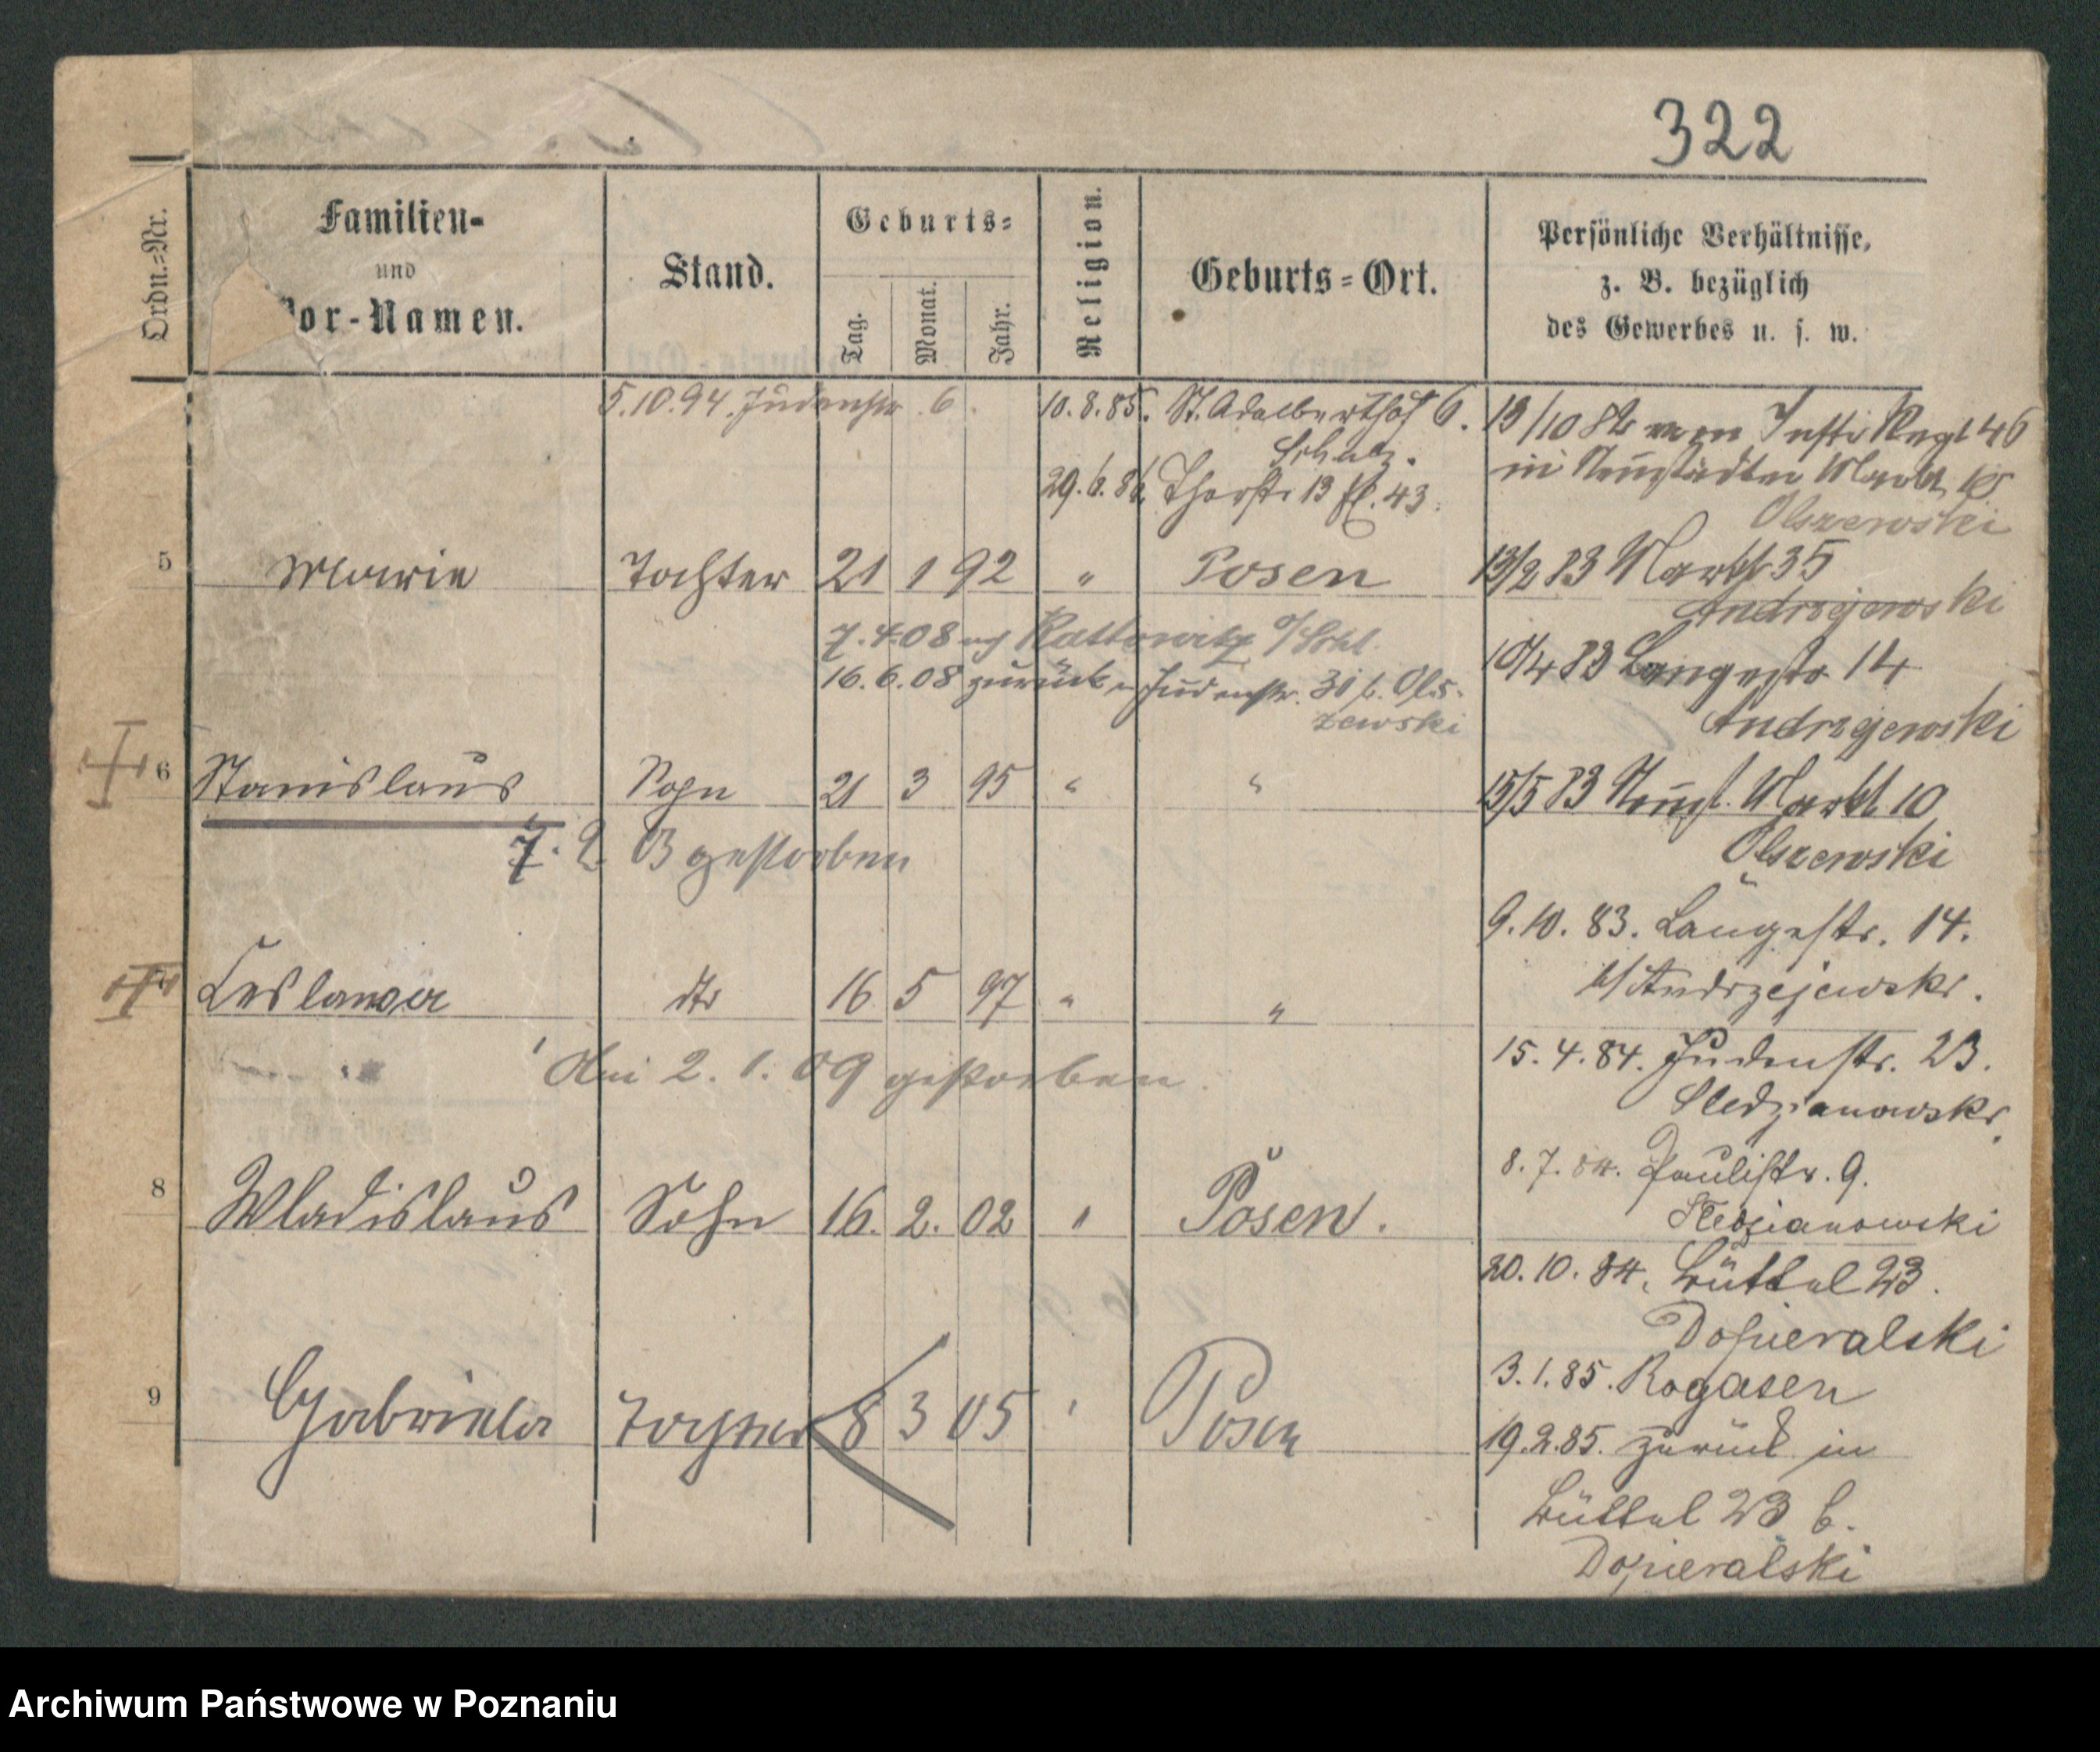 322
Ordn.=Nr.
Familien-
und
Vor-Namen.
Stand.
Geburts=
Tag.
Monat.
Jahr.
Religion.
Geburts=Ort.
Persönliche Verhältnisse,
z. B. bezüglich
des Gewerbes u. s. w.
5.10.94. Judenstr. 6.
10.8.85. St. Adalberthof 6.
Schulz.
29.6.86 Thorstr 13 b. 43.
5 Marie Tochter 21 1 92 " Posen
7.4.08 Kattowitz O/Schl.
16.6.08 zurück Judenstr. 30 b. Ols-
zewski
6 Stanislaus Sohn 21 3 95 " "
7. 2. 03 gestorben
Ceslawa dto 16 5 97 " "
Am 2. 1. 09 gestorben.
8 Wladislaus Sohn 16. 2. 02 " Posen.
9 Gabriela Tochter 8 3 05 " Posen
13/10 82 vom Inftr Regt 46
in Neustädter Markt 10
Olszewski
13/2 83 Markt 35
Andrzejewski
10/4 83 Langestr 14
Andrzejewski
15/5 83 Neust. Markt 10
Olszewski
9.10.83. Langestr. 14.
b/Andrzejewski.
15.4.84. Judenstr. 23.
Sledzianowski,
8.7.84. Paulistr. 9.
Sledzianowski
20.10.84. Büttel 23.
Dopieralski
3.1.85. Rogasen
19.2.85. zurück in
Büttel 23 b.
Dopieralski
Archiwum Państwowe w Poznaniu